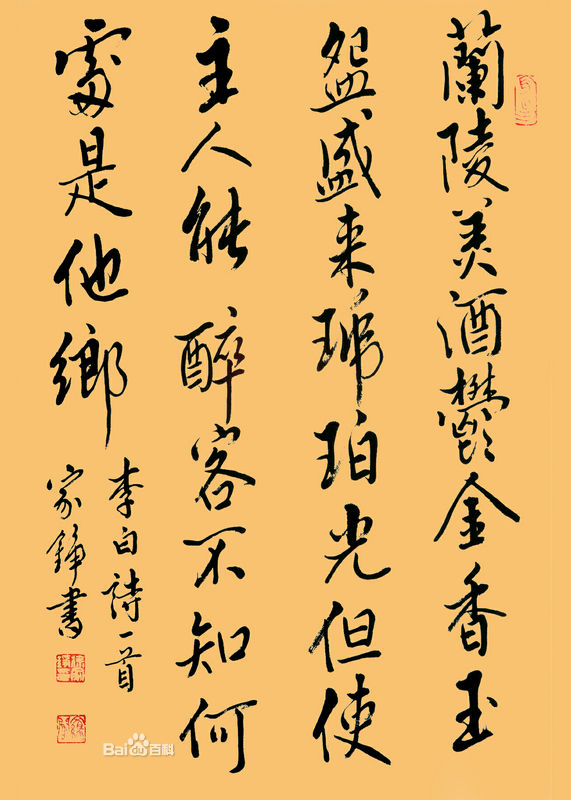 蘭陵美酒鬱金香玉
盌盛来琥珀光但使
主人能醉客不知何
處是他鄉
李白詩一首
家錚書
Bai百科